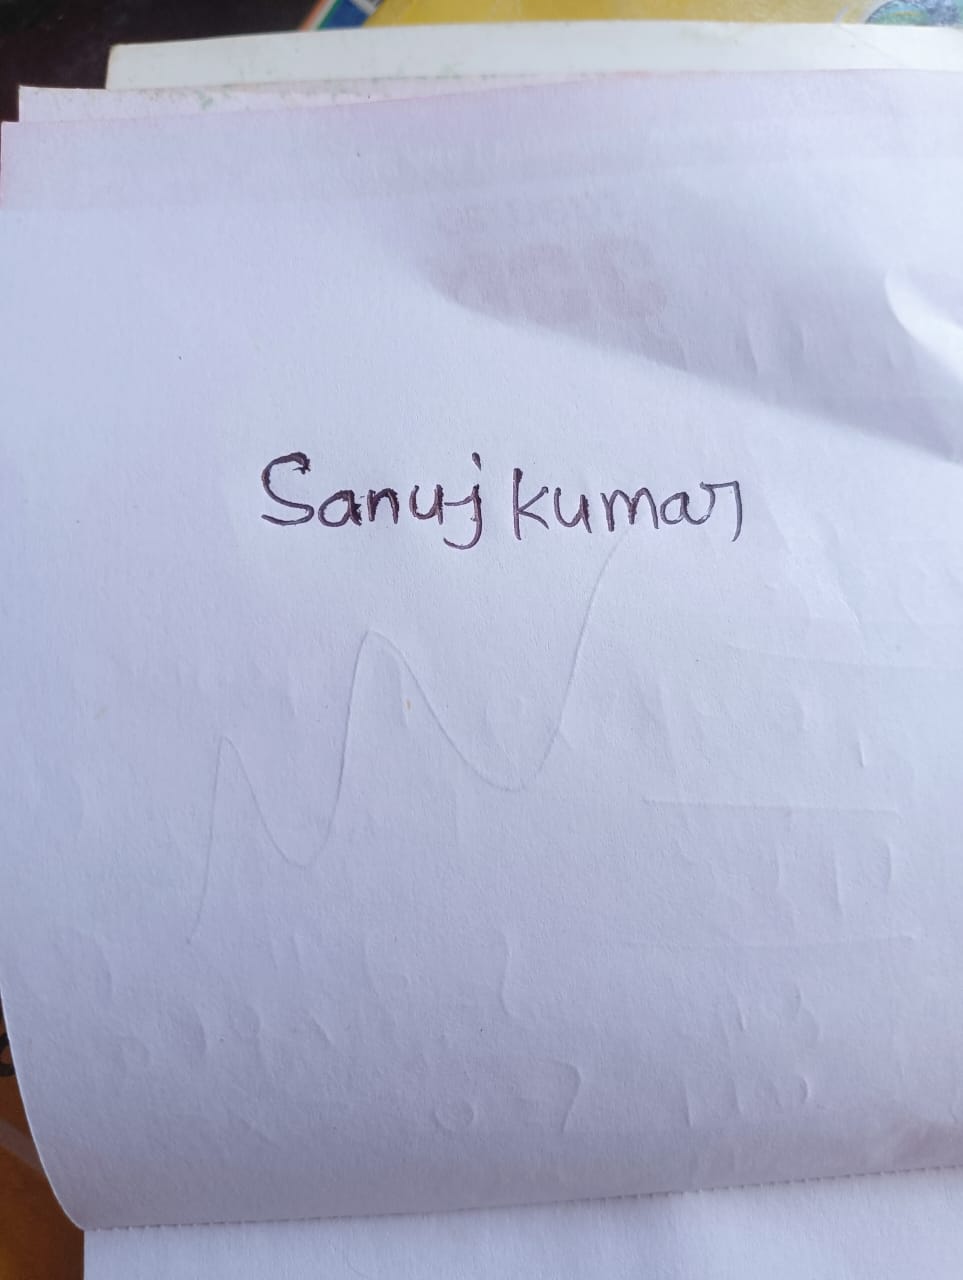 Sanuj kumar